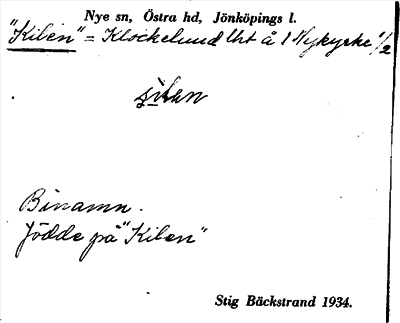 Nye sn, Östra hd, Jönköpings l.
"Kilen" = Klockelund lht å 1 Nykyrke 1/2
Binamn.
Jödde på "Kilen"
Stig Bäckstrand 1934.